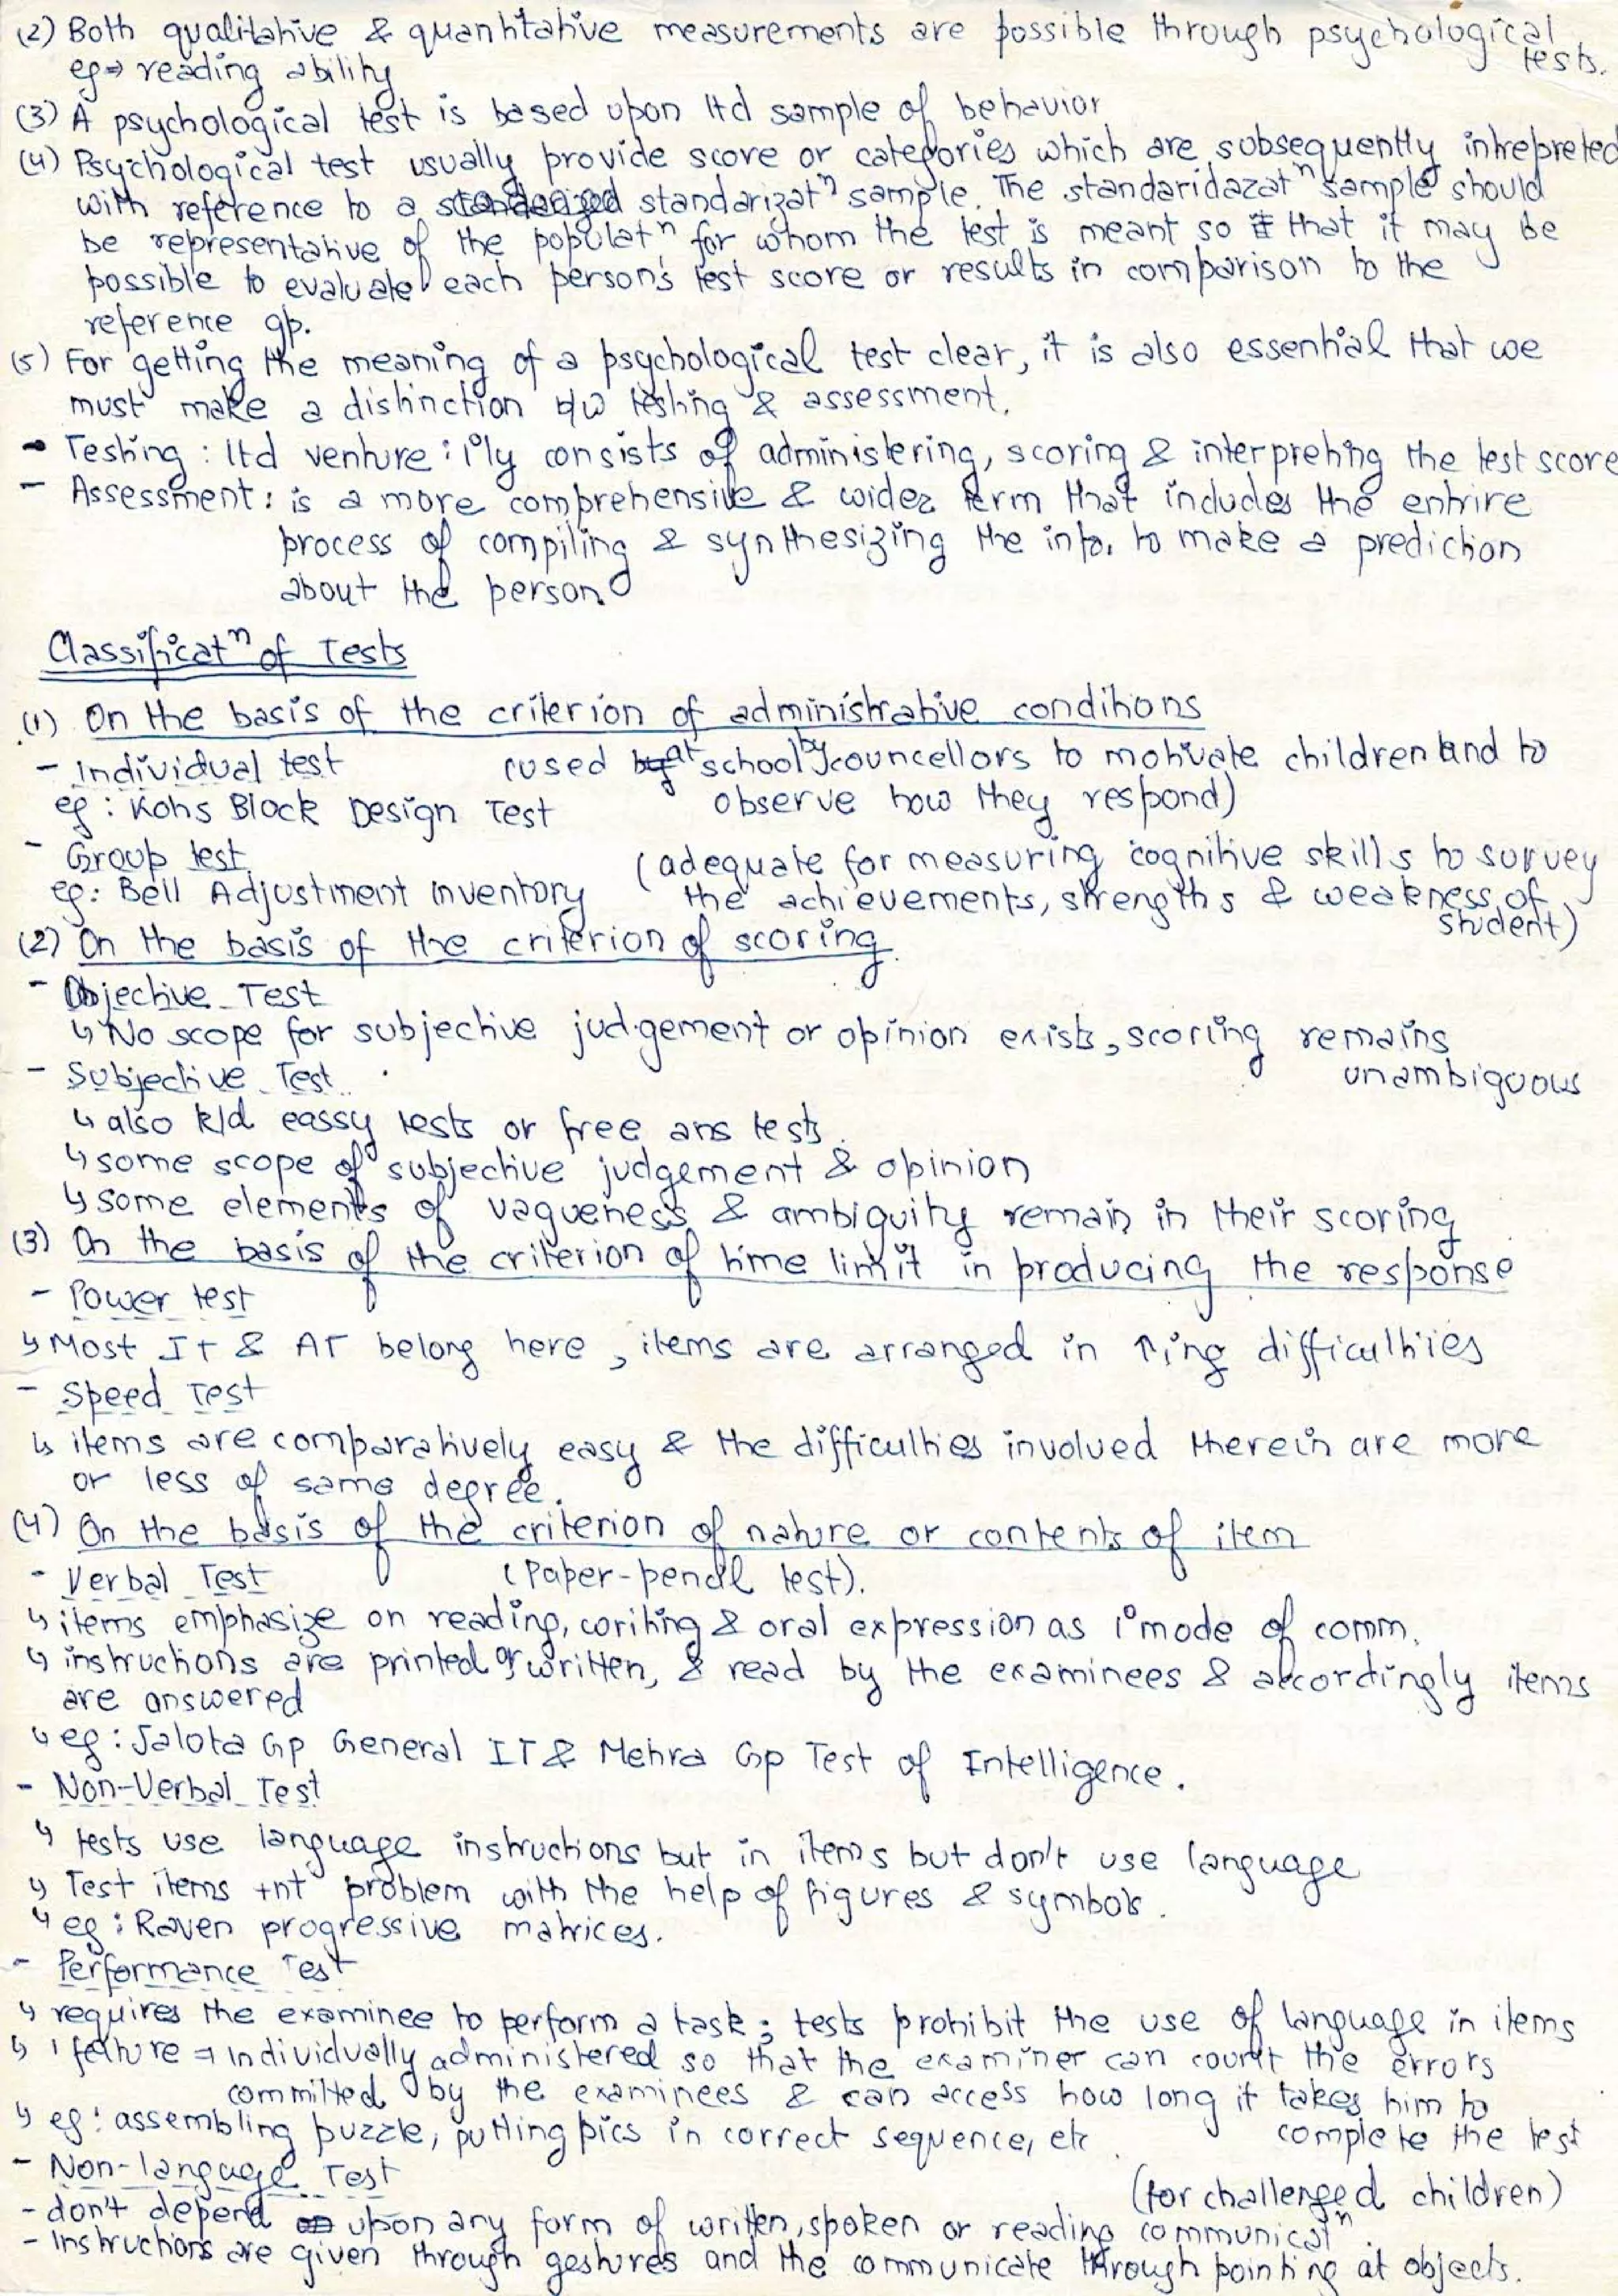 (2) Both qualitative & quantitative measurements are possible through psychological tests.
eg⇒ reading ability
(3) A psychological test is based upon ltd sample of behavior
(4) Psychological test usually provide score or categories which are subsequently intrepreted
with reference to a standarizatⁿ sample. The standaridazatⁿ sample should
be representative of the populatⁿ for whom the test is meant so that it may be
possible to evaluate each person's test score or results in comparison to the
reference gp.
(5) For getting the meaning of a psychological test clear, it is also essential that we
must make a distinction b/w testing & assessment.
- Testing : ltd venture : 1°ly consists of administering, scoring & interpreting the test score
- Assessment : is a more comprehensive & wider term that includes the entrire
process of compiling & synthesizing the info. to make a prediction
about the person
Classificatⁿ of Tests
(1) On the basis of the criterion of administrative conditions
- Individual test (used at school by councellors to motivate children and to
eg : Kohs Block Design Test observe how they respond)
- Group test (adequate for measuring cognitive skills to survey
eg: Bell Adjustment Inventory the achievements, strengths & weakness of student)
(2) On the basis of the criterion of scoring.
- Objective Test
↳ No scope for subjective judgement or opinion exists, scoring remains unambiguous
- Subjective Test
↳ also k/d eassy tests or free ans tests.
↳ some scope of subjective judgement & opinion
↳ some elements of vagueness & ambiguity remain in their scoring
(3) On the basis of the criterion of time limit in producing the response
- Power test
↳ Most IT & AT belong here, items are arranged in ↑ing difficulties
- Speed Test
↳ items are comparatively easy & the difficulties involved therein are more
or less of same degree.
(4) On the basis of the criterion of nature or contents of item
- Verbal Test (Paper-pencil test).
↳ items emphasize on reading, writing & oral expression as 1° mode of comm.
↳ instructions are printed or written, & read by the examinees & accordingly items
are answered
↳ eg : Jalota Gp General IT & Mehra Gp Test of Intelligence.
- Non-Verbal Test
↳ tests use language instructions but in items but don't use language
↳ Test items +nt problem with the help of figures & symbols.
↳ eg : Raven progressive matrices.
- Performance Test
↳ requires the examinee to perform a task ; tests prohibit the use of language in items
↳ 1 feature ⇒ Individually administered so that the examiner can count the errors
committed by the examinees & can access how long it takes him to
↳ eg : assembling puzzle, putting pics in correct sequence, etc. complete the test
- Non-language Test (for challenged children)
- don't depend upon any form of written, spoken or reading communicatⁿ.
- Instructions are given through gestures and the communicate through pointing at objects.